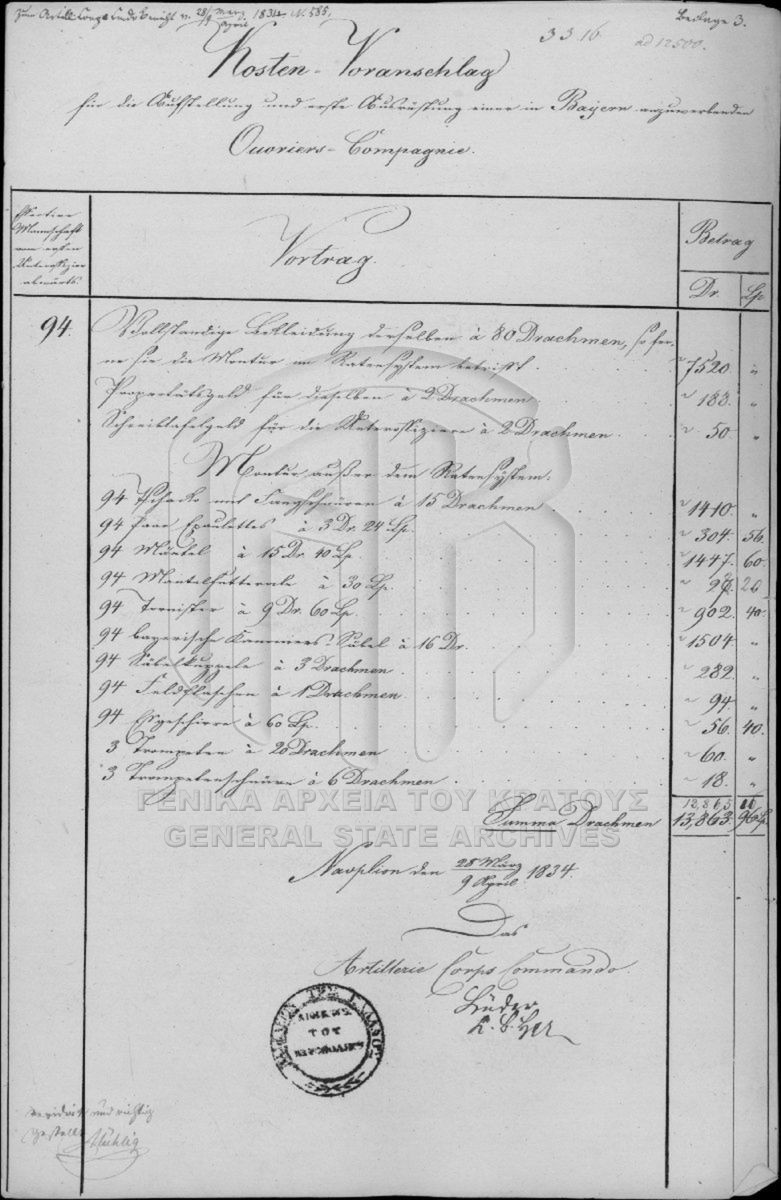 Zum Artill. Corps Cmdo Bericht v. 28/9 März/April 1834 N. 585.
Beilage 3.
3316
ad 12500.
Kosten-Voranschlag
für die Aufstellung und erste Ausrüstung einer in Bayern anzuwerbenden
Ouvriers-Compagnie.
Effective
Mannschaft
vom ersten
Unteroffizier
abwärts.
Vortrag.
Betrag
Dr. Lp
94. Vollständige Bekleidung derselben à 80 Drachmen, so fer-
ne sie die Montur im Ratensystem betrifft. 7520. "
Propretätsgeld für dieselben à 2 Drachmen 188. "
Schreibtafelgeld für die Unteroffiziere à 2 Drachmen. 50. "
Montur außer dem Ratensystem:
94 Tschacko mit Fangschnüren à 15 Drachmen 1410. "
94 paar Epaulettes à 3 Dr. 24 Lp. 304. 56.
94 Mäntel à 15 Dr. 40 Lp. 1447. 60.
94 Mantelfutterale à 30 Lp. 28. 20
94 Tornister à 9 Dr. 60 Lp. 902. 40.
94 bayerische Kanoniers-Säbel à 16 Dr. 1504. "
94 Säbelkuppele à 3 Drachmen 282. "
94 Feldflaschen à 1 Drachmen 94. "
94 Eßgeschirre à 60 Lp. 56. 40.
3 Trompeten à 20 Drachmen 60. "
3 Trompetenschnüre à 6 Drachmen 18. "
12,865
Summa Drachmen 13,863. 96 Lp.
ΓΕΝΙΚΑ ΑΡΧΕΙΑ ΤΟΥ ΚΡΑΤΟΥΣ
GENERAL STATE ARCHIVES
Nauplion den 28 März/9 April 1834.
Das
Artillerie Corps Commando.
Lüder
ΤΟΥ
revidirt und richtig
gestellt